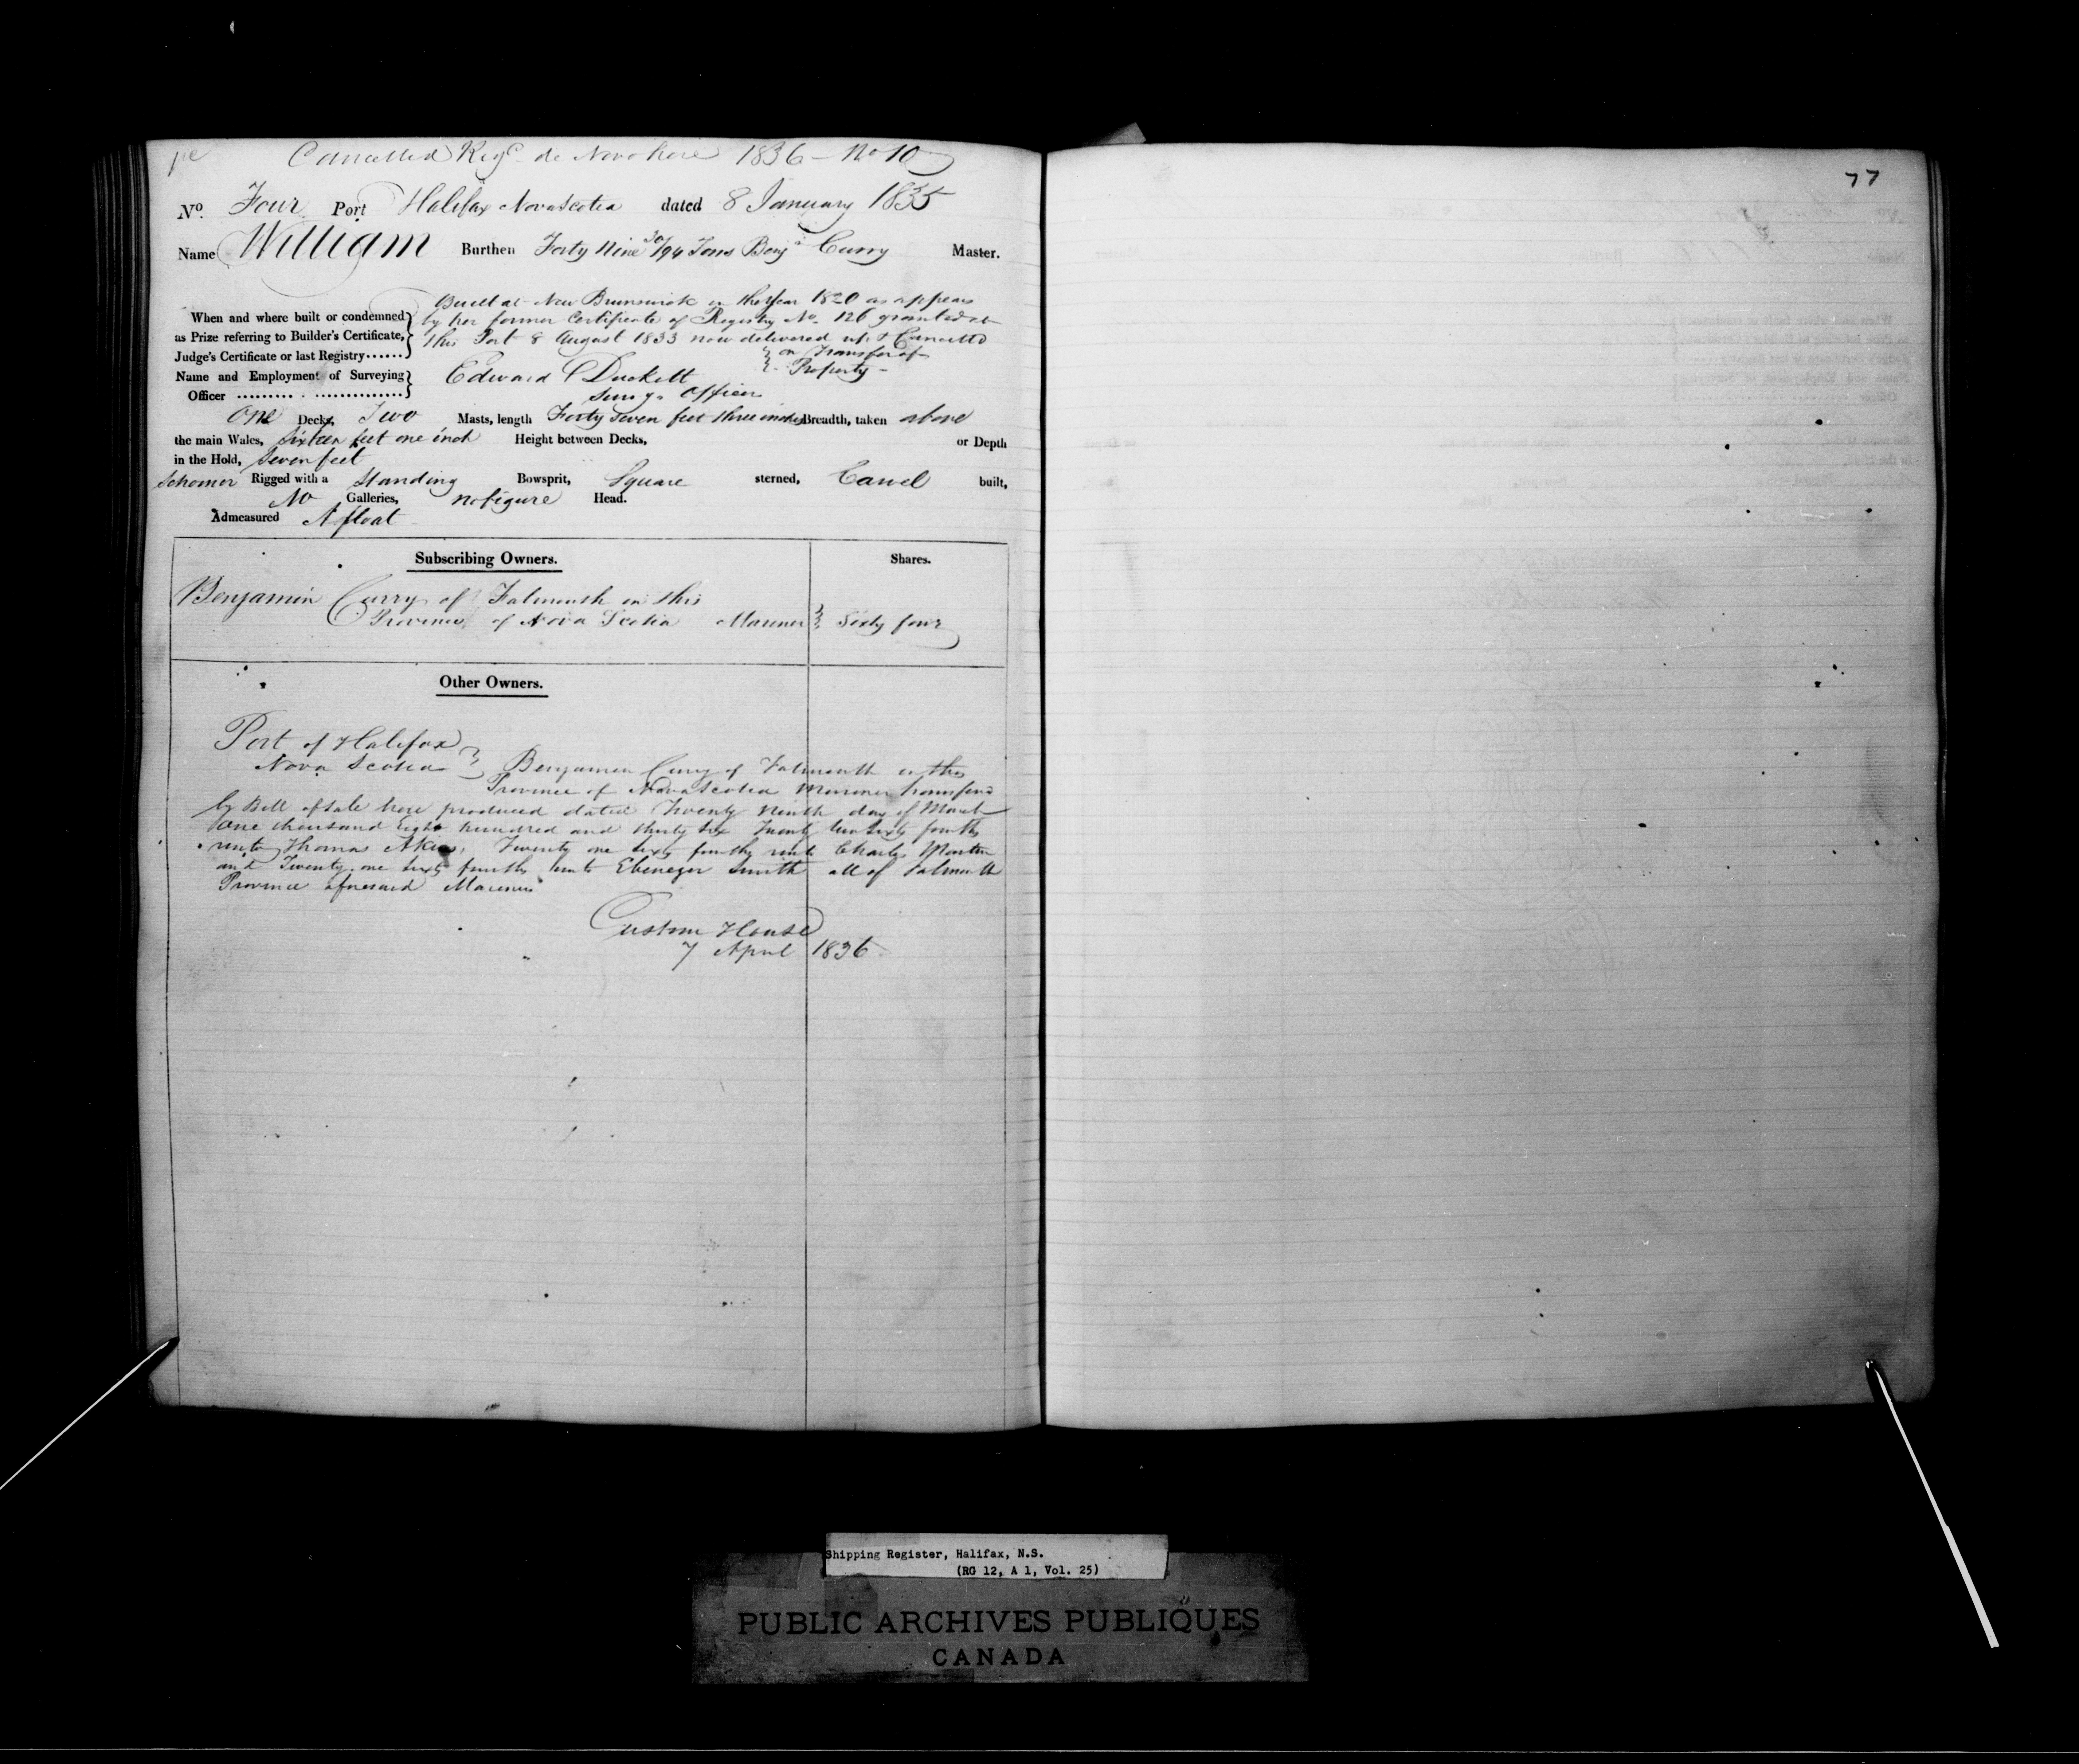 Cancelled Reg^d de Novo here 1836 - No 10
77
No. Four Port Halifax Nova Scotia dated 8 January 1835
Name William Burthen Forty Nine 30/94 Tons Benj^n Curry Master.
Built at New Brunswick in the year 1820 as appears
When and where built or condemned by her former Certificate of Registry No. 126 granted at
as Prize referring to Builder's Certificate, this Port 8 August 1833 now delivered up & Cancelled
Judge's Certificate or last Registry...... on Transfer of
Name and Employment of Surveying Edward Duckett Property -
Officer Surv^g. Officer
One Decks, Two Masts, length Forty Seven feet three inches Breadth, taken above
the main Wales, Sixteen feet one inch Height between Decks, or Depth
in the Hold, Seven feet
Schooner Rigged with a Standing Bowsprit, Square sterned, Carvel built,
No Galleries, no figure Head.
Admeasured Afloat
Subscribing Owners. Shares.
Benjamin Curry of Falmouth in this
Province of Nova Scotia Mariner Sixty four
Other Owners.
Port of Halifax
Nova Scotia Benjamin Curry of Falmouth in the
Province of Nova Scotia Mariner transferd
by Bill of Sale here produced dated Twenty Ninth day of March
One thousand Eight hundred and thirty six Twenty two Sixty fourths
unto Thomas Akins, Twenty one sixty fourths unto Charles Martin
and Twenty one sixty fourths unto Ebenezer Smith all of Falmouth
Province aforesaid Mariners
Custom House
7 April 1836
Shipping Register, Halifax, N.S.
(RG 12, A 1, Vol. 25)
PUBLIC ARCHIVES PUBLIQUES
CANADA